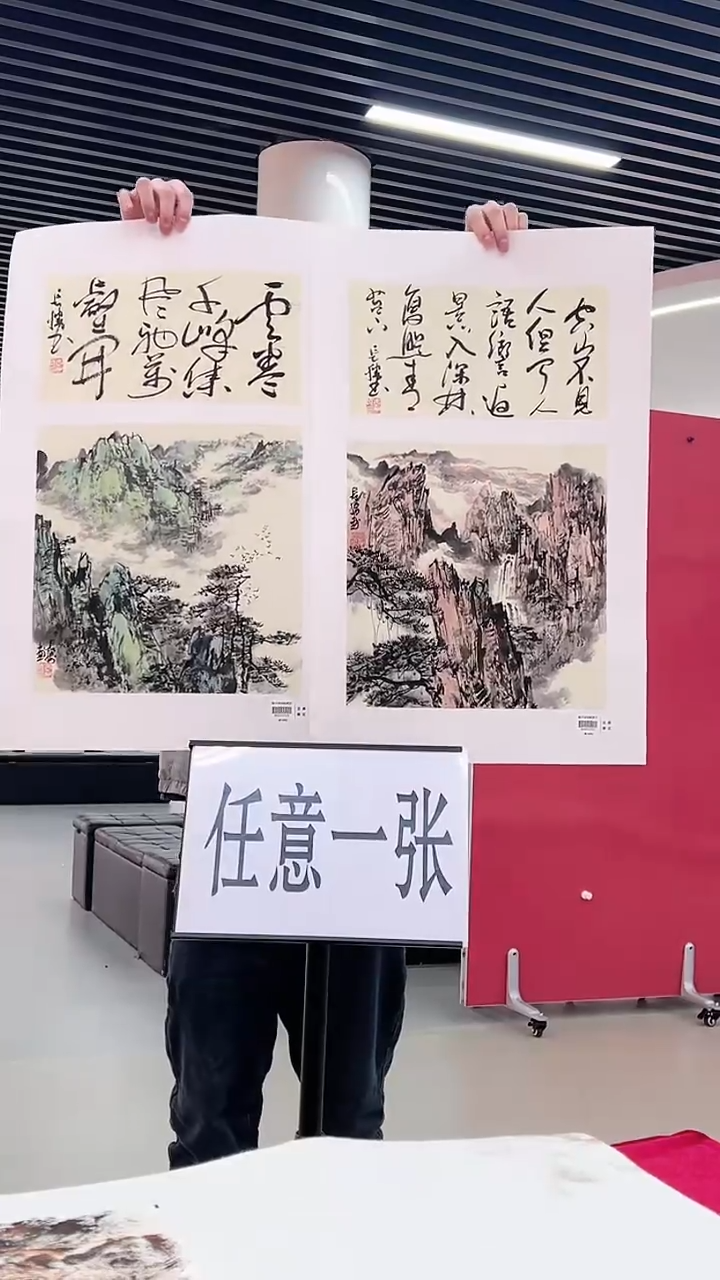 云卷
千峰集
风驰万
壑开
空山不见
人但闻人
语响返
景入深林
复照青
苔上
任意一张